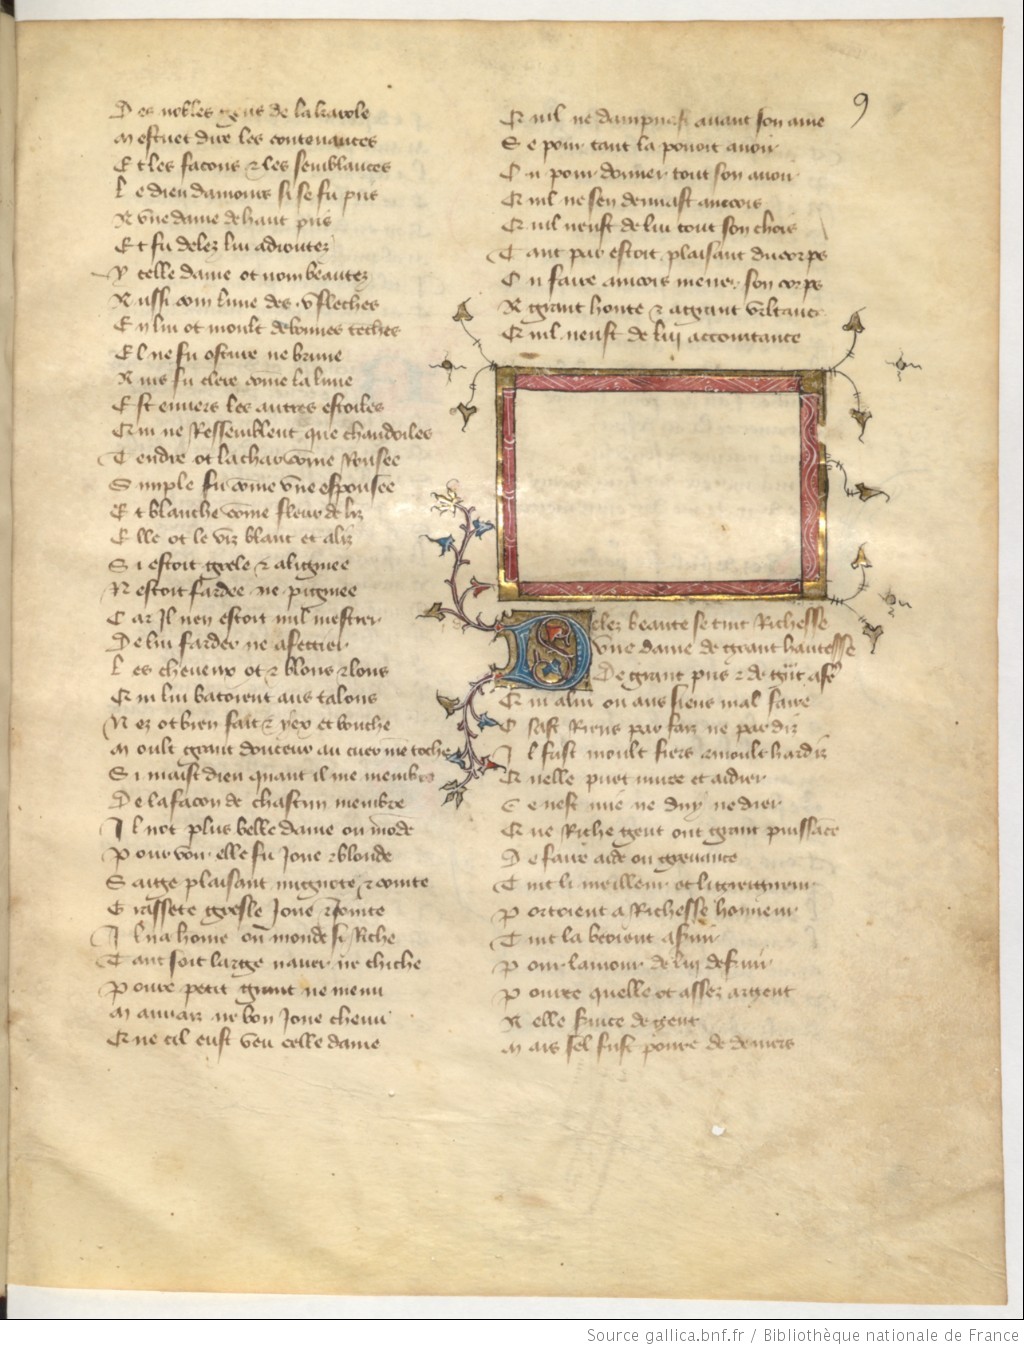 9
Des nobles gens de la karole
Mestuet dire les contenances
Et les facons & les semblances
Le dieu damours si se fu pris
A vne dame de haut pris
Et fu delez lui adioutez
Ycelle dame ot nom beautez
Aussi com lune des .v. fleches
En lui ot moult de bonnes teches
El ne fu oscure ne brune
Ains fu clere cōme la lune
Est enuers les autres estoiles
Qui ne Ressemblent que chandoiles
Tendre ot la char cōme Rousee
Simple fu cōme vne espousee
Et blanche cōme fleur de liz
Elle ot le viz blanc et aliz
Si estoit grele & alignee
Nestoit fardee ne pignee
Car Il nen estoit nul mestier
De lui farder ne afettier
Les cheueux ot & blons & lons
Qui lui batoient aus talons
Nez ot bien fait & yex et bouche
Moult grant douceur au cuer me toche
Si maist dieu quant il me membre
De la facon de chascun membre
Il not plus belle dame ou mōde
Pour voir elle fu Jone & blonde
Saige plaisant mignote & cointe
Grassete gresle Jone & Jointe
Il na home ou monde si Riche
Tant soit large nauer ne chiche
Poure petit grant ne menu
Mauuaiz ne bon Jone chenu
Que cil eust veu celle dame
Quil ne dampnast auant son ame
Se pour tant la pouoit auoir
En pour donner tout son auoir
Quil ne sen donnast ancois
Quil neust de lui tout son chois
Tant par estoit plaisant du corps
En faire ancois mener son corps
A grant honte & a grant viltance
Quil neust de luy accointance
Delez beaute se tint Richesse
Vne dame de grant hautesse
De grant pris & de gr̄t afe
Qui a lui ou aus siens mal faire
Osast Riens par faiz ne par diz
Il fust moult fiers & moult hardiz
Quelle puet nuire et aidier
Ce nest mie ne duy ne dier
Que Riche gent ont grant puissāce
De faire aide ou greuance
Tuit li meilleur et li greigneur
Portoient a Richesse honneur
Tuit la beoient a seruir
Pour lamour de luy deseruir
Pource quelle ot assez argent
A elle seruice de gent
Mais sel fust poure de deniers
Source gallica.bnf.fr / Bibliothèque nationale de France